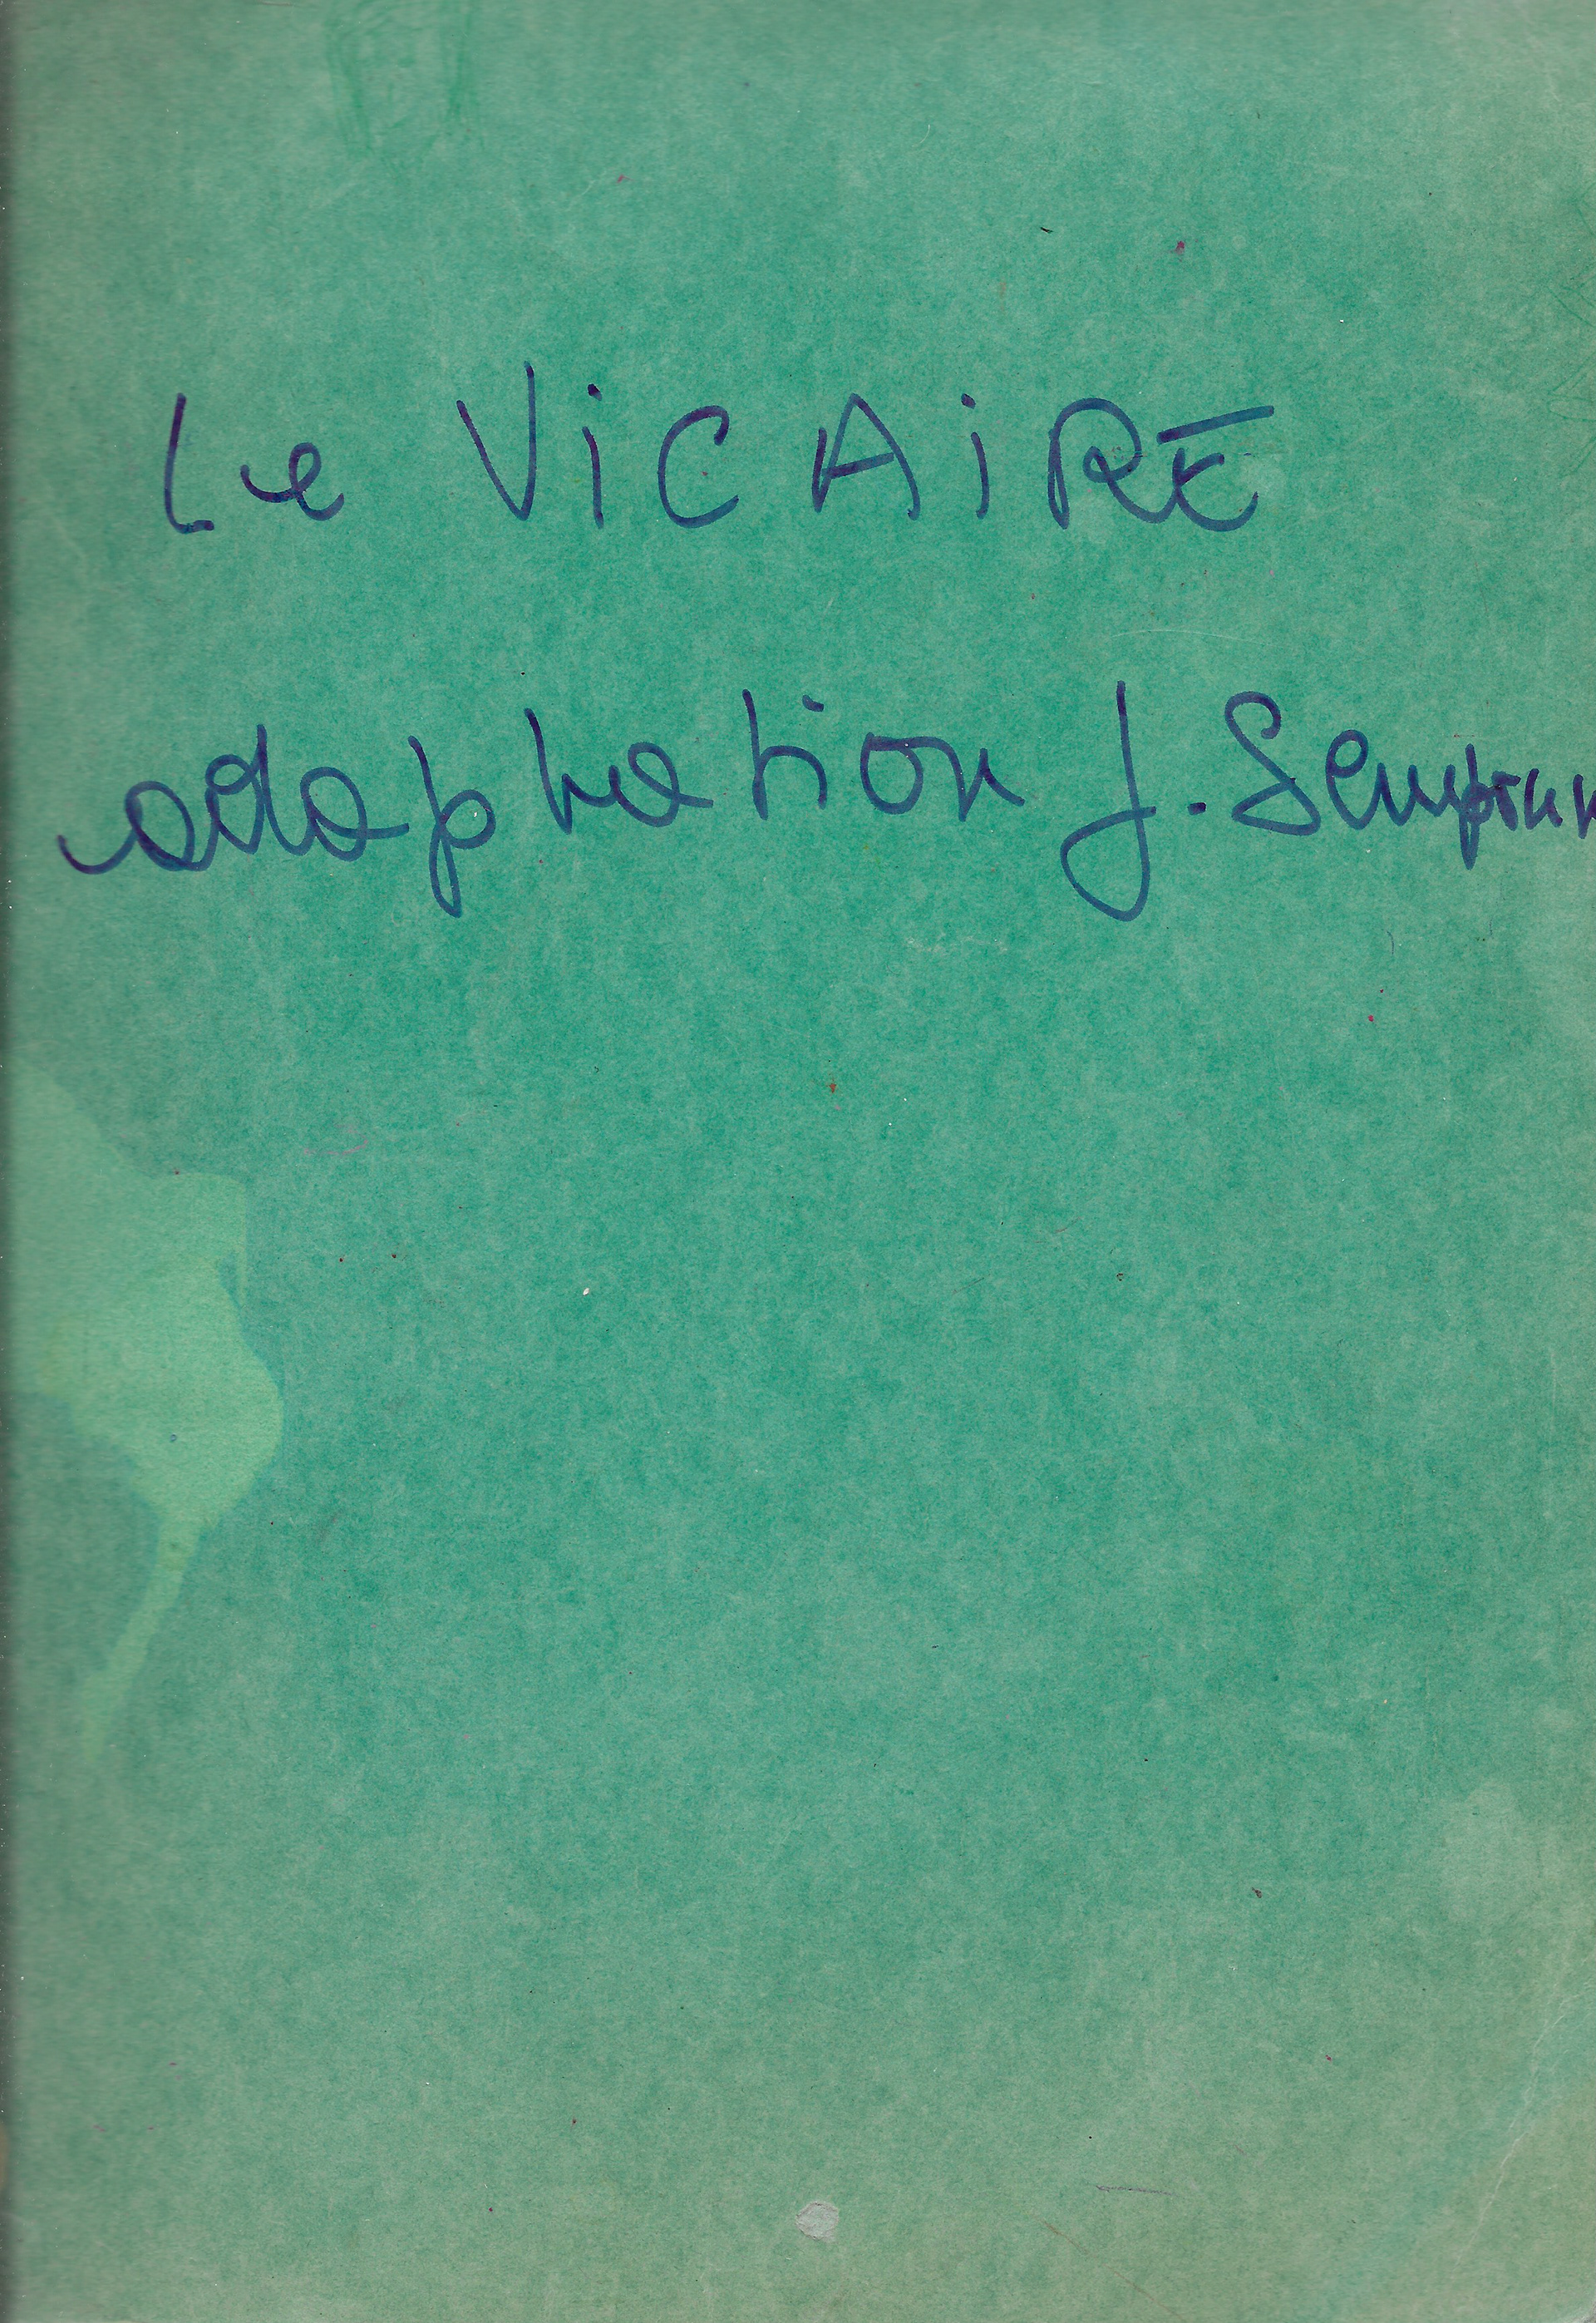 Le ViCAiRE
adaptation J. Semprun